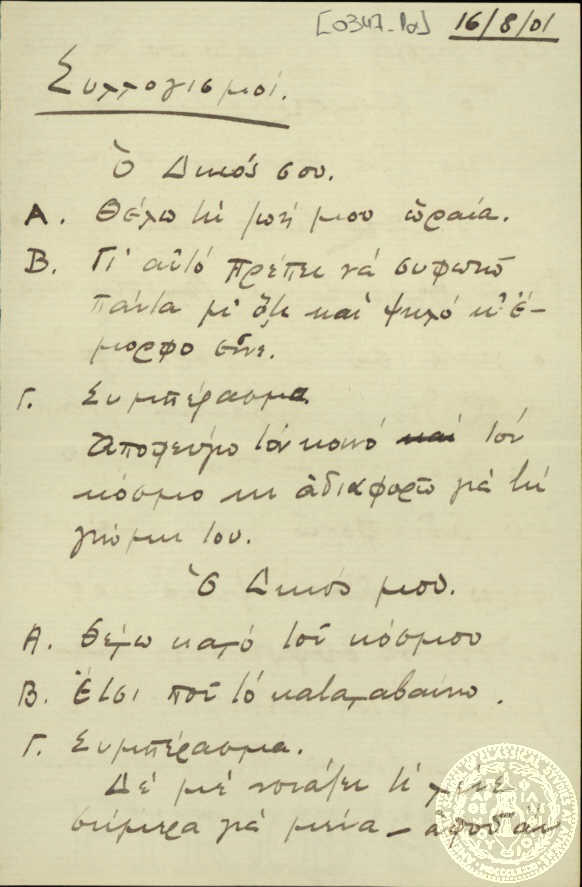 [0347-1α] 16/8/01
Συλλογισμοί.
Ὁ Δικός σου.
Α. Θέλω τὴ ζωή μου ὡραία.
Β. Γι' αὐτό πρέπει νά συφωνῶ
πάντα μ' ὅτι καὶ ψηλό κι' ἔ-
μορφο εἶνε.
Γ. Συμπέρασμα
Ἀποφεύγω τόν κοινό και τόν
κόσμο κι ἀδιαφορῶ γιὰ τὴ
γνώμη του.
Ὁ Δικός μου.
Α. Θέλω καλό τοῦ κόσμου
Β. Ἔτσι ποῦ τό καταλαβαίνω.
Γ. Συμπέρασμα.
Δέ μέ νοιάζει τί λένε
σήμερα γιὰ μένα – ἀφοῦ ἂν